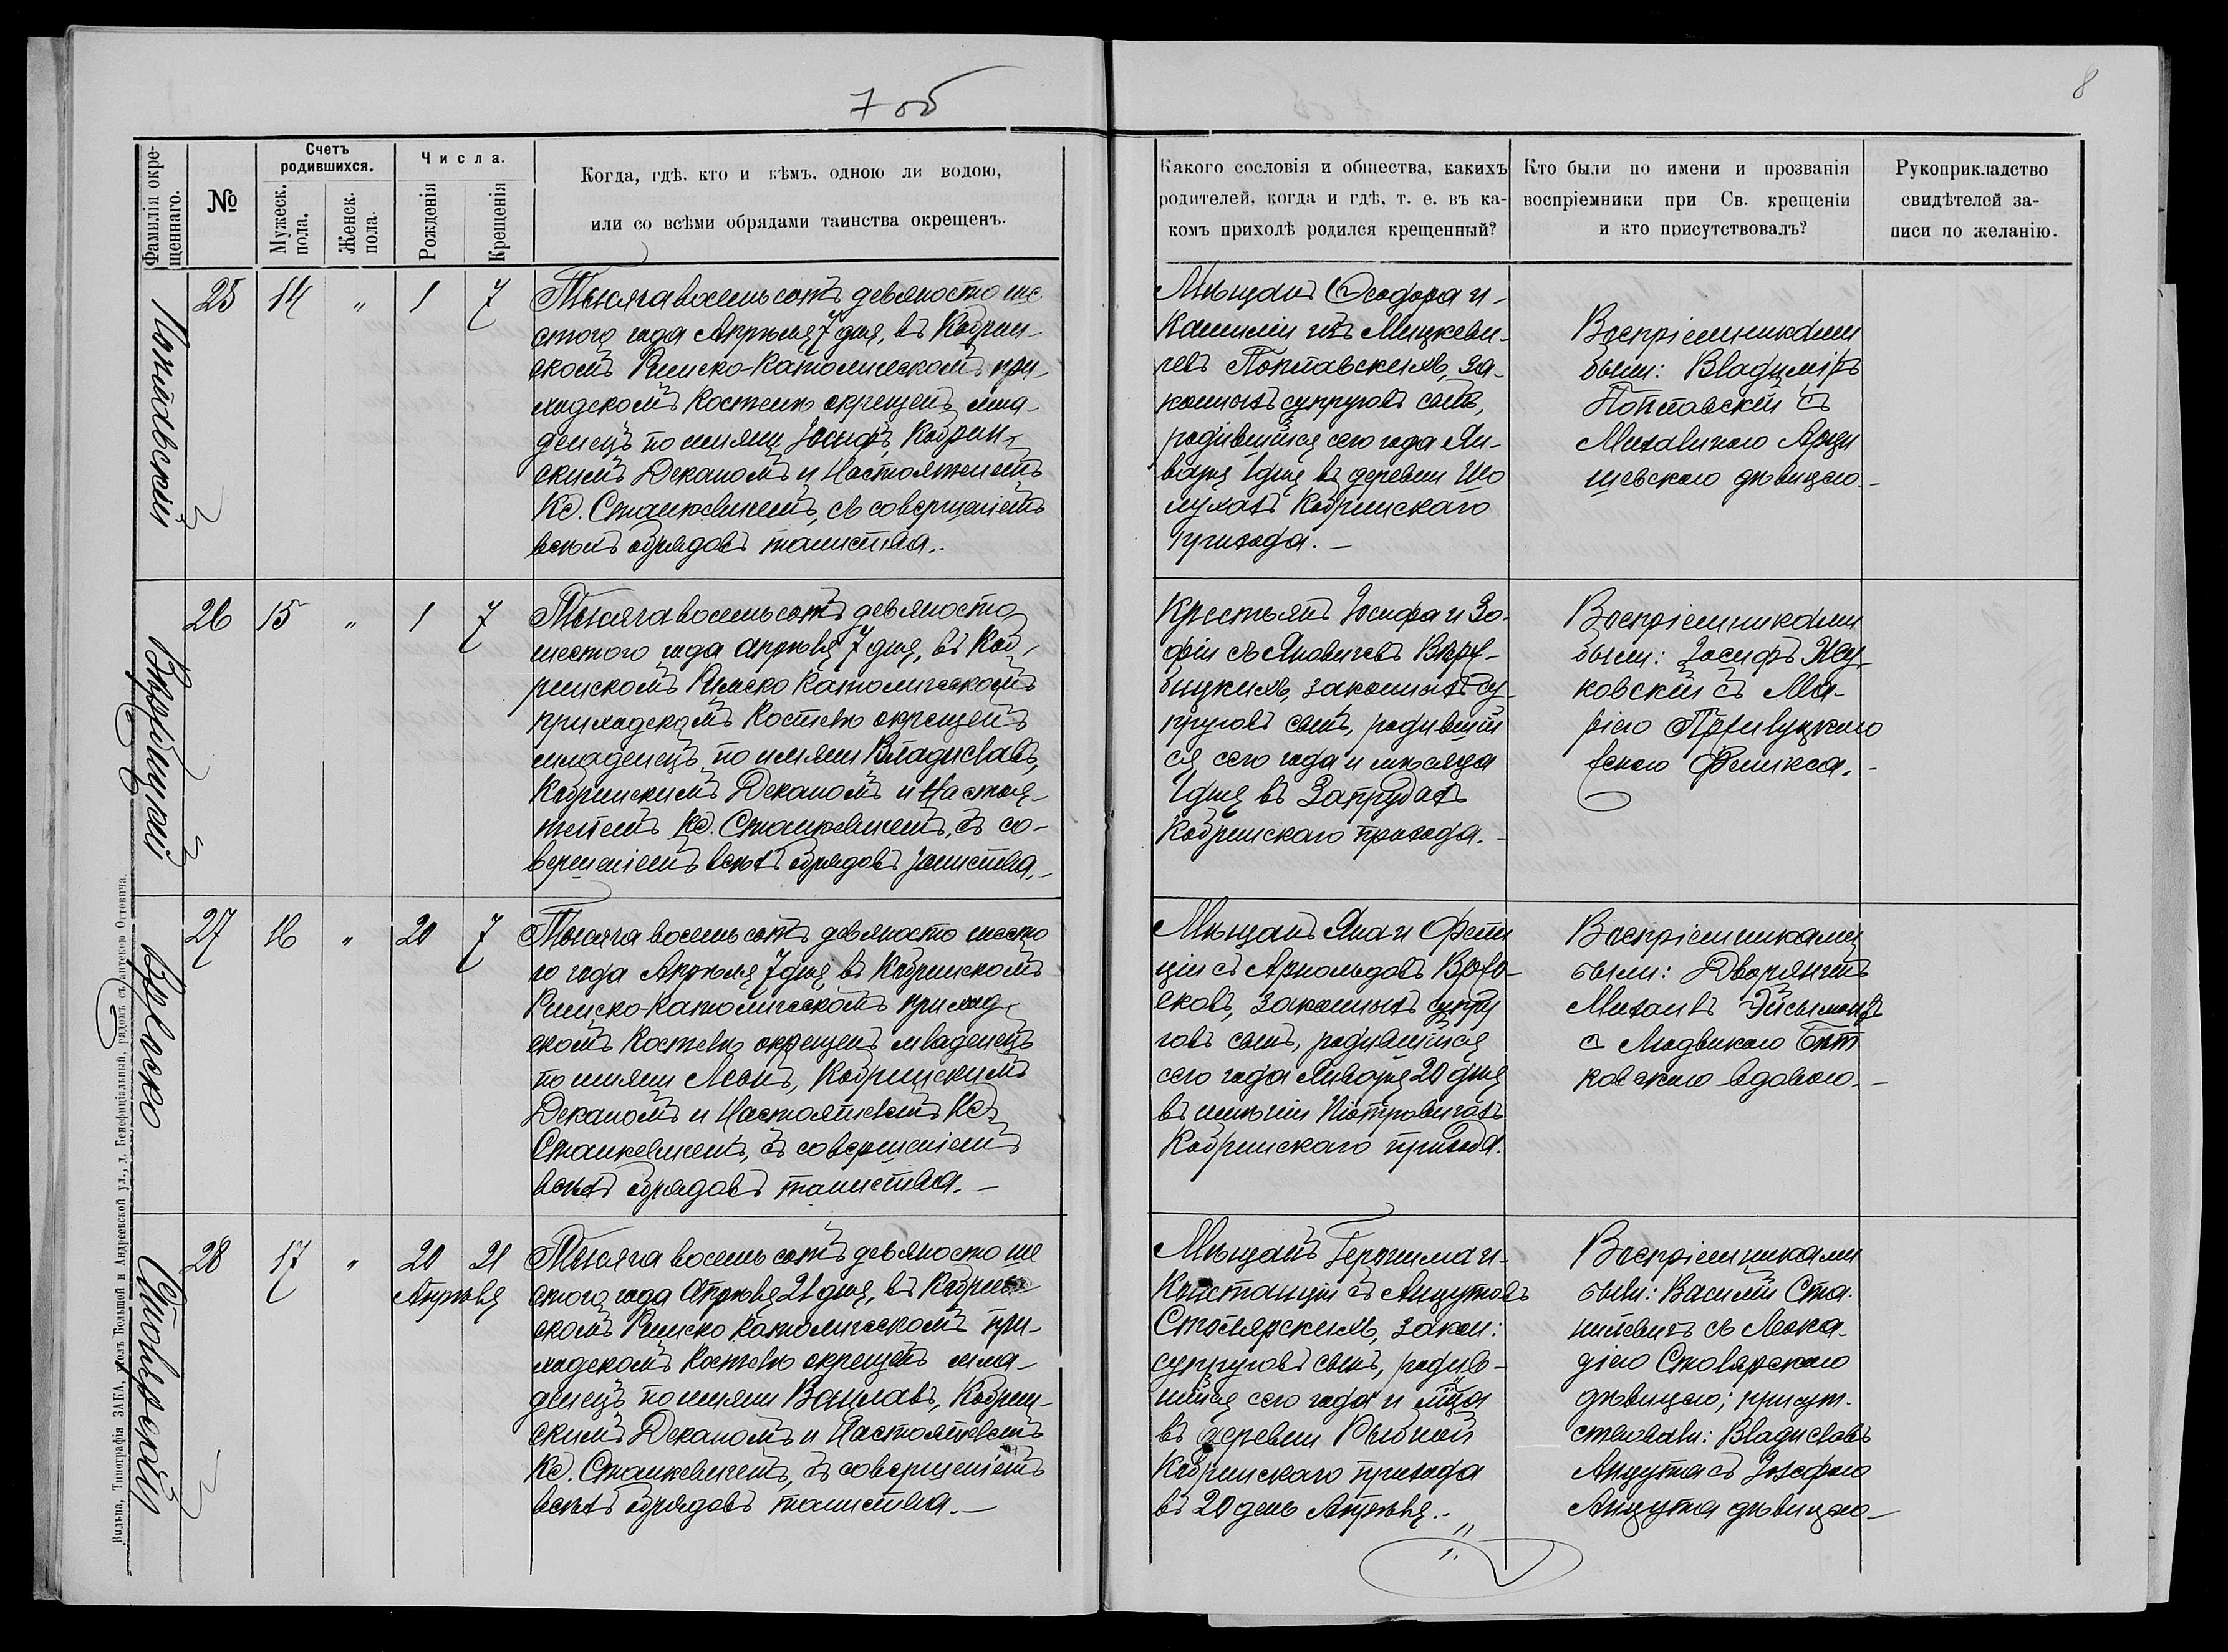 7 об
8
Фамилія окре-
щеннаго.
№
Счетъ
родившихся.
Мужеск.
пола.
Женск.
пола.
Числа.
Рожденія
Крещенія
Когда, гдѣ, кто и кѣмъ, одною ли водою,
или со всѣми обрядами таинства окрещенъ.
Какого сословія и общества, какихъ
родителей, когда и гдѣ, т. е. въ ка-
комъ приходѣ родился крещенный?
Кто были по имени и прозванія
воспріемники при Св. крещеніи
и кто присутствовалъ?
Рукоприкладство
свидѣтелей за-
писи по желанію.
25 14 " 1 7
Тысяча восемь сотъ девяносто ше
стого года Апрѣля 7 дня, въ Кобрин-
скомъ Римско-Католическомъ при-
ходскомъ Костелѣ окрещенъ мла-
денецъ по имяни Іосифъ, Кобрин-
скимъ Деканомъ и Настоятелемъ
Кс. Станкевичемъ, съ совершеніемъ
всѣхъ обрядовъ таинства.
Мѣщанъ Ѳеодора и
Камиліи изъ Мицкеви-
чевъ за-
конныхъ супруговъ сынъ,
родившійся сего года Ян-
варя 1 дня въ деревни
Кобринскаго
прихода.
Воспріемниками
были: Владиміръ
съ
Михалиною
дѣвицею.
26 15 " 1 7
Тысяча восемь сотъ девяносто
шестого года Апрѣля 7 дня, въ Коб-
ринскомъ Римско Католическомъ
приходскомъ Костелѣ окрещенъ
младенецъ по имяни Владиславъ,
Кобринскимъ Деканомъ и Настоя-
телемъ Кс. Станкевичемъ, съ со-
вершеніемъ всѣхъ обрядовъ таинства.
Крестьянъ Іосифа и Зо-
фіи съ Яновичевъ
законныхъ су-
пруговъ сынъ, родившій
ся сего года и мѣсяца
1 дня въ Запрудахъ
Кобринскаго прихода.
Воспріемниками
были: Іосифъ
съ Ма-
ріею
женою Феликса.
27 16 " 20 7
Врублевско
Тысяча восемь сотъ девяносто шесто
го года Апрѣля 7 дня, въ Кобринскомъ
Римско-Католическомъ приход-
скомъ Костелѣ окрещенъ младенецъ
по имяни Леонъ, Кобринскимъ
Деканомъ и Настоятелемъ Кс.
Станкевичемъ, съ совершеніемъ
всѣхъ обрядовъ таинства.
Мѣщанъ Яна и Фели
ціи съ Арнольдовъ
законныхъ супру
говъ сынъ, родившійся
сего года Января 20 дня
въ имѣніи Піотровичахъ
Кобринскаго прихода.
Воспріемниками
были: Дворянинъ
Михаилъ Эйсымонтъ
съ Людвикою
вдовою.
28 17 " 20 21
Апрѣля
Столярскій
Тысяча восемь сотъ девяносто ше
стого года Апрѣля 21 дня, въ Кобрин
скомъ Римско Католическомъ при-
ходскомъ Костелѣ окрещенъ мла-
денецъ по имяни Вацлавъ, Кобрин-
скимъ Деканомъ и Настоятелемъ
Кс. Станкевичемъ, съ совершеніемъ
всѣхъ обрядовъ таинства.
Мѣщанъ Геронима и
Констанціи съ Анцутовъ
Столярскихъ, закон:
супруговъ сынъ, родив-
шійся сего года и мѣца
въ деревни Рыбной
Кобринскаго прихода
въ 20 день Апрѣля.
Воспріемниками
были: Василій
съ Леока-
діею Столярскою
дѣвицею; присут-
ствовали: Владиславъ
Анцута съ Іозефою
Анцута дѣвицею
Вильна, Типографія ЗАКА, уголъ Большой и Андреевской ул., д. Бенефиціальный, рядомъ съ аптекою Оттовича.